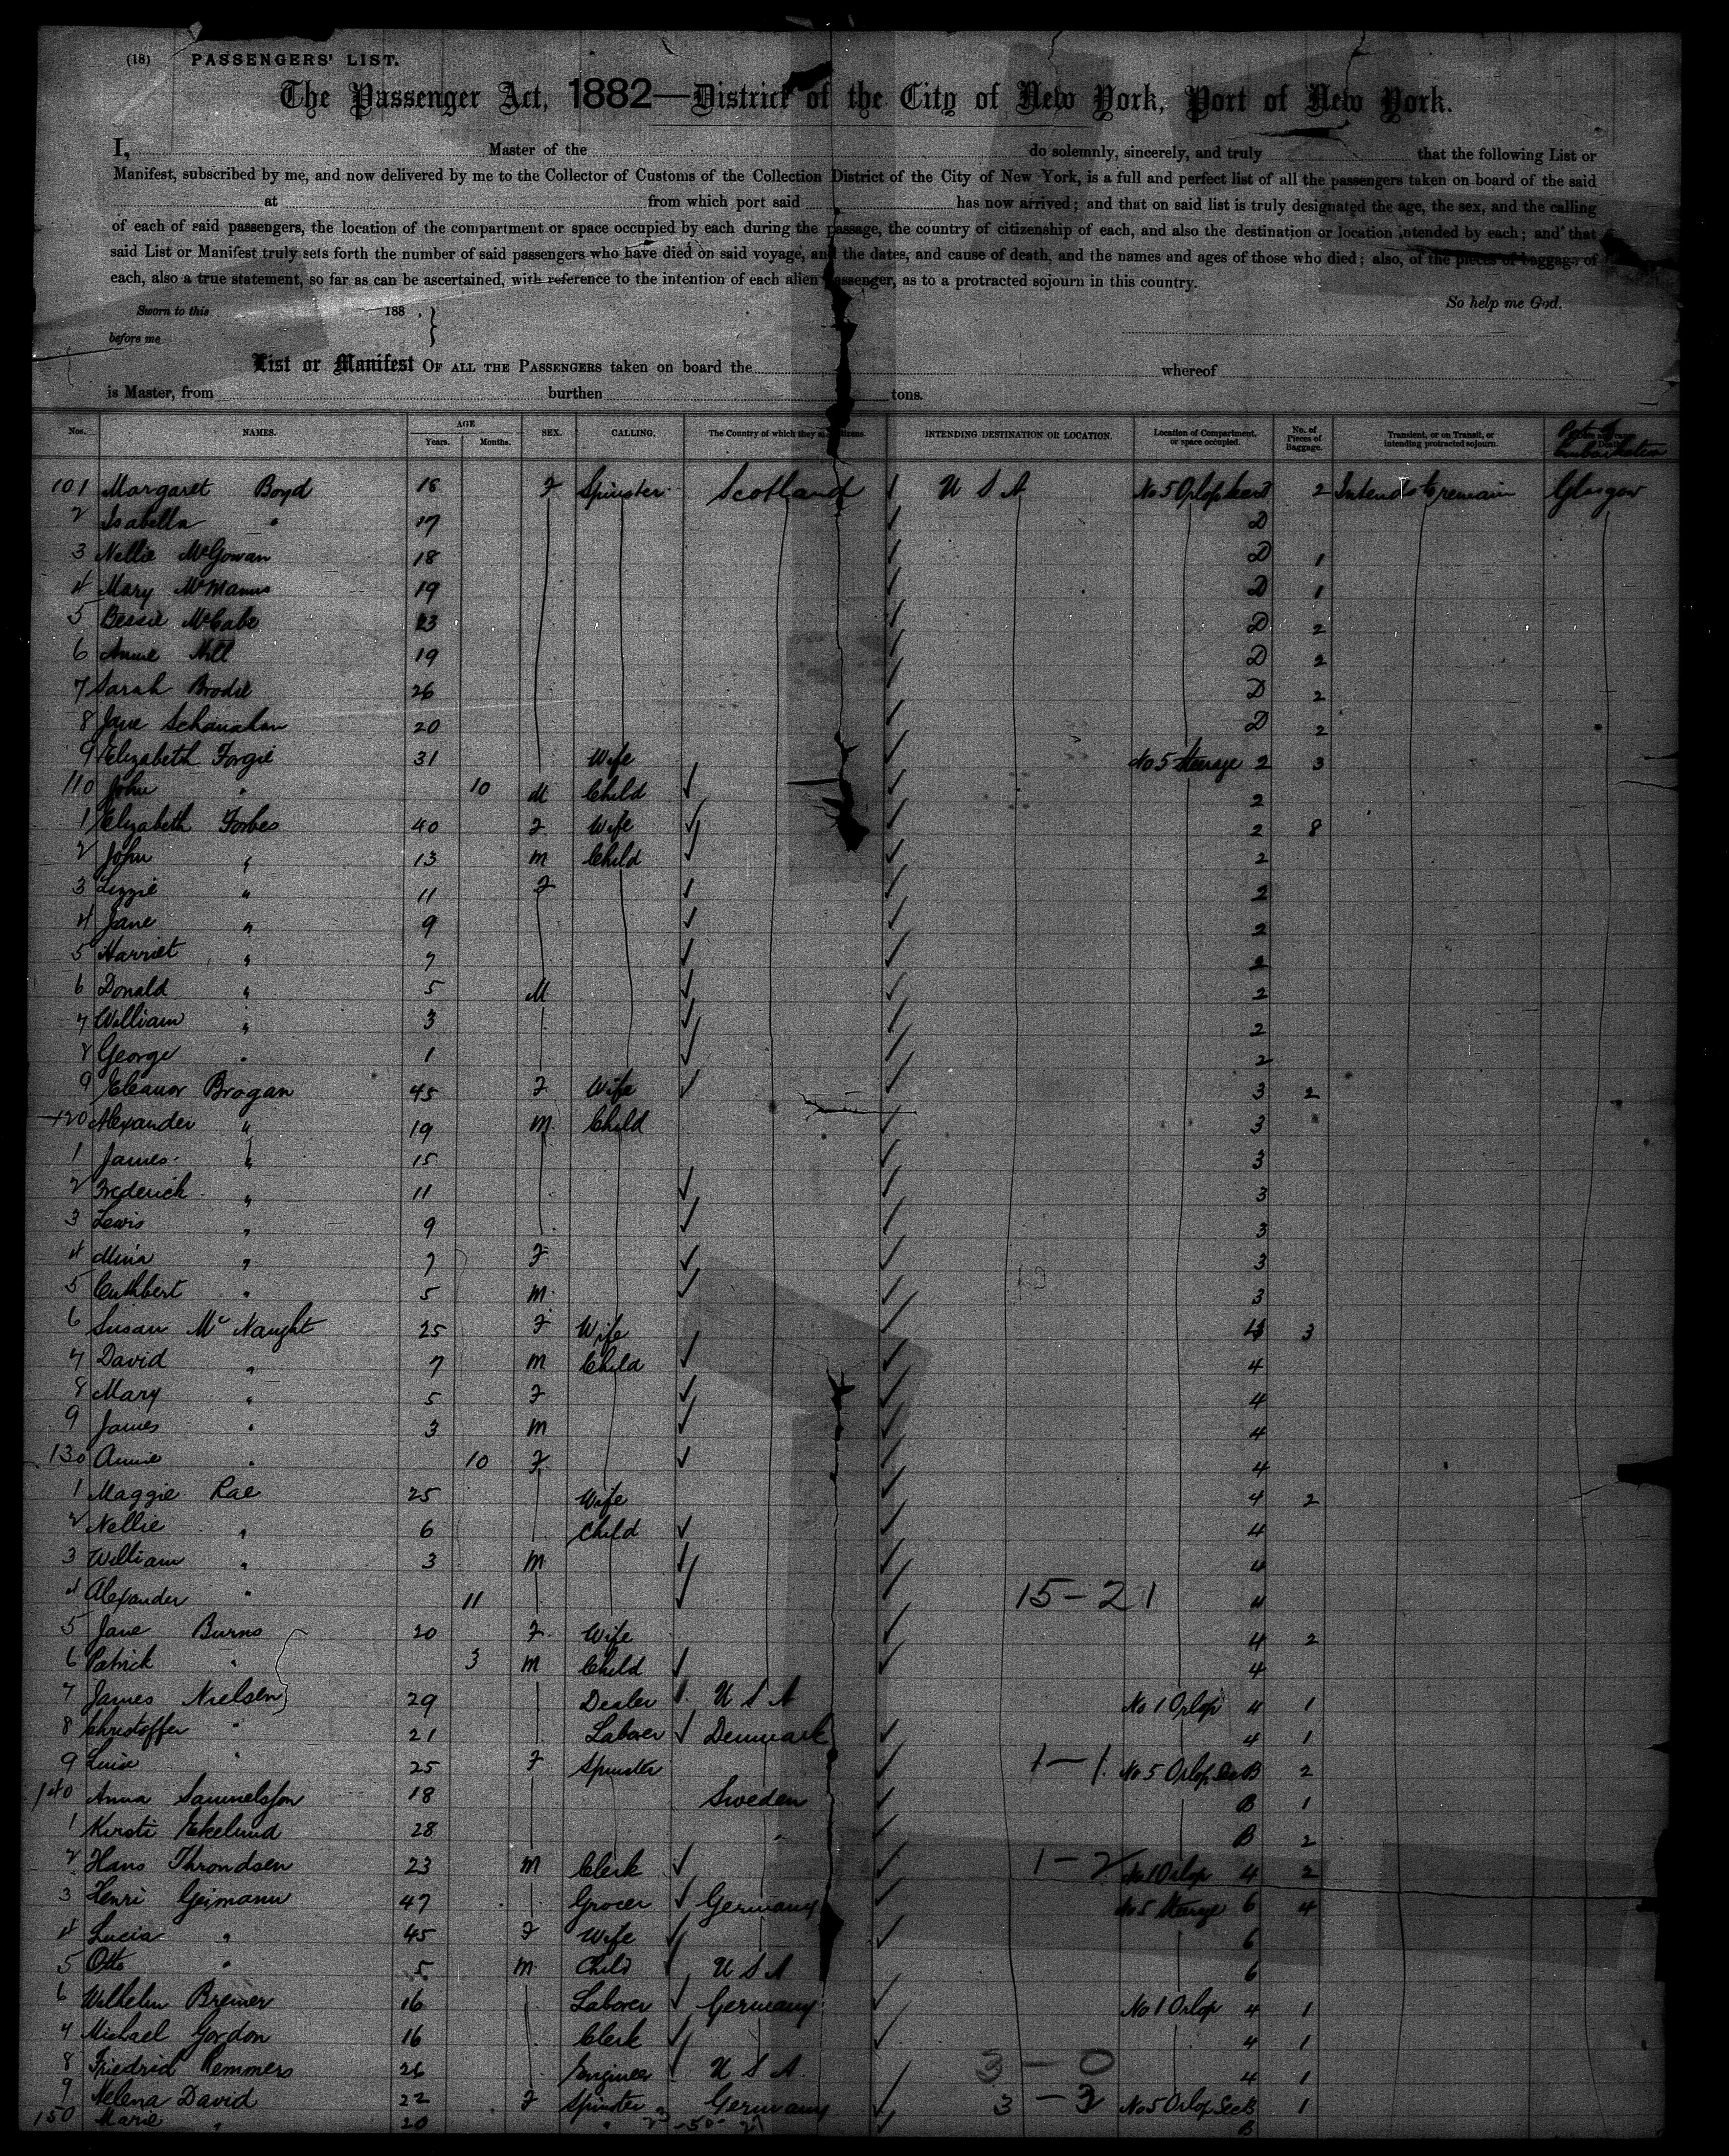 (18) PASSENGERS' LIST.
The Passenger Act, 1882—District of the City of New York, Port of New York.
I, Master of the do solemnly, sincerely, and truly that the following List or
Manifest, subscribed by me, and now delivered by me to the Collector of Customs of the Collection District of the City of New York, is a full and perfect list of all the passengers taken on board of the said
at from which port said has now arrived; and that on said list is truly designated the age, the sex, and the calling
of each of said passengers, the location of the compartment or space occupied by each during the passage, the country of citizenship of each, and also the destination or location intended by each; and that
said List or Manifest truly sets forth the number of said passengers who have died on said voyage, and the dates, and cause of death, and the names and ages of those who died; also, of the pieces of baggage of
each, also a true statement, so far as can be ascertained, with reference to the intention of each alien passenger, as to a protracted sojourn in this country.
Sworn to this 188 . } So help me God.
before me
List or Manifest OF ALL THE PASSENGERS taken on board the whereof
is Master, from burthen tons.
Nos. NAMES. AGE Years. Months. SEX. CALLING. The Country of which they are citizens. INTENDING DESTINATION OR LOCATION. Location of Compartment, or space occupied. No. of Pieces of Baggage. Transient, or on Transit, or intending protracted sojourn. Port of Embarkation
101 Margaret Boyd 18 F Spinster Scotland ✓ U S A No 5 Orlop 2 Intends to remain Glasgow
2 Isabella " 17 ✓ D
3 Nellie McGowan 18 ✓ D 1
4 Mary McManus 19 ✓ D 1
5 Bessie McCabe 23 ✓ D 2
6 Annie 19 ✓ D 2
7 Sarah Brodie 26 ✓ D 2
8 Jane Schanahan 20 ✓ D 2
9 Elizabeth Forgie 31 Wife ✓ No 5 Steerage 2 3
110 John " 10 M Child ✓ ✓ 2
1 Elizabeth Forbes 40 F Wife ✓ ✓ 2 8
2 John " 13 M Child ✓ ✓ 2
3 Lizzie " 11 F ✓ ✓ 2
4 Jane " 9 ✓ ✓ 2
5 Harriet " 7 ✓ ✓ 2
6 Donald " 5 M ✓ ✓ 2
7 William " 3 ✓ ✓ 2
8 George " 1 ✓ ✓ 2
9 Eleanor Brogan 45 F Wife ✓ ✓ 3 2
120 Alexander " 19 M Child ✓ 3
1 James " 15 ✓ 3
2 Frederick " 11 ✓ ✓ 3
3 Lewis " 9 ✓ ✓ 3
4 Mina " 7 F ✓ ✓ 3
5 Cuthbert " 5 M ✓ ✓ 3
6 Susan McNaught 25 F Wife ✓ 4 3
7 David " 7 M Child ✓ ✓ 4
8 Mary " 5 F ✓ ✓ 4
9 James " 3 M ✓ ✓ 4
130 Annie " 10 F ✓ ✓ 4
1 Maggie Rae 25 Wife ✓ 4 2
2 Nellie " 6 Child ✓ ✓ 4
3 William " 3 M ✓ ✓ 4
4 Alexander " 11 ✓ ✓ 15-21 4
5 Jane Burns 20 F Wife ✓ 4 2
6 Patrick " 3 M Child ✓ ✓ 4
7 James Nielsen 29 Dealer ✓ U S A No 1 Orlop 4 1
8 Christoffer " 21 Laborer ✓ Denmark ✓ 4 1
9 Luise " 25 F Spinster ✓ 1-1 No 5 Orlop Sec B 2
140 Anna Sammelsson 18 Sweden ✓ B 1
1 Kirsti Ekelund 28 " ✓ B 2
2 Hans Throndsen 23 M Clerk ✓ ✓ 1-2 No 1 Orlop 4 2
3 Henri Geimann 47 Grocer ✓ Germany ✓ No 5 Steerage 6 4
4 Lucia " 45 F Wife ✓ ✓ 6
5 Otto " 5 M Child ✓ U S A 6
6 Wilhelm Bremer 16 Laborer ✓ Germany ✓ No 1 Orlop 4 1
7 Michael Gordon 16 Clerk ✓ ✓ 4 1
8 Friedrid Remmers 26 Engineer ✓ U S A 3-0 4 1
9 Helena David 22 F Spinster Germany ✓ 3-3 No 5 Orlop Sec B 1
150 Marie " 20 " ✓ B